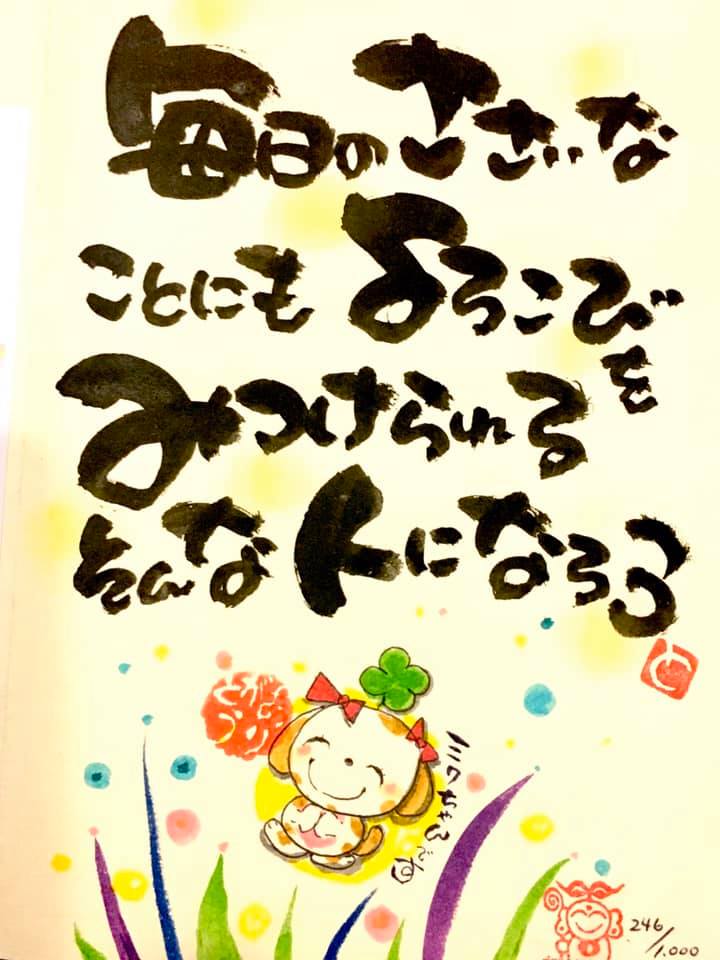 毎日のささいな
ことにもよろこびを
みつけられる
そんな人になろう
と
ミロちゃんです
246/1.000